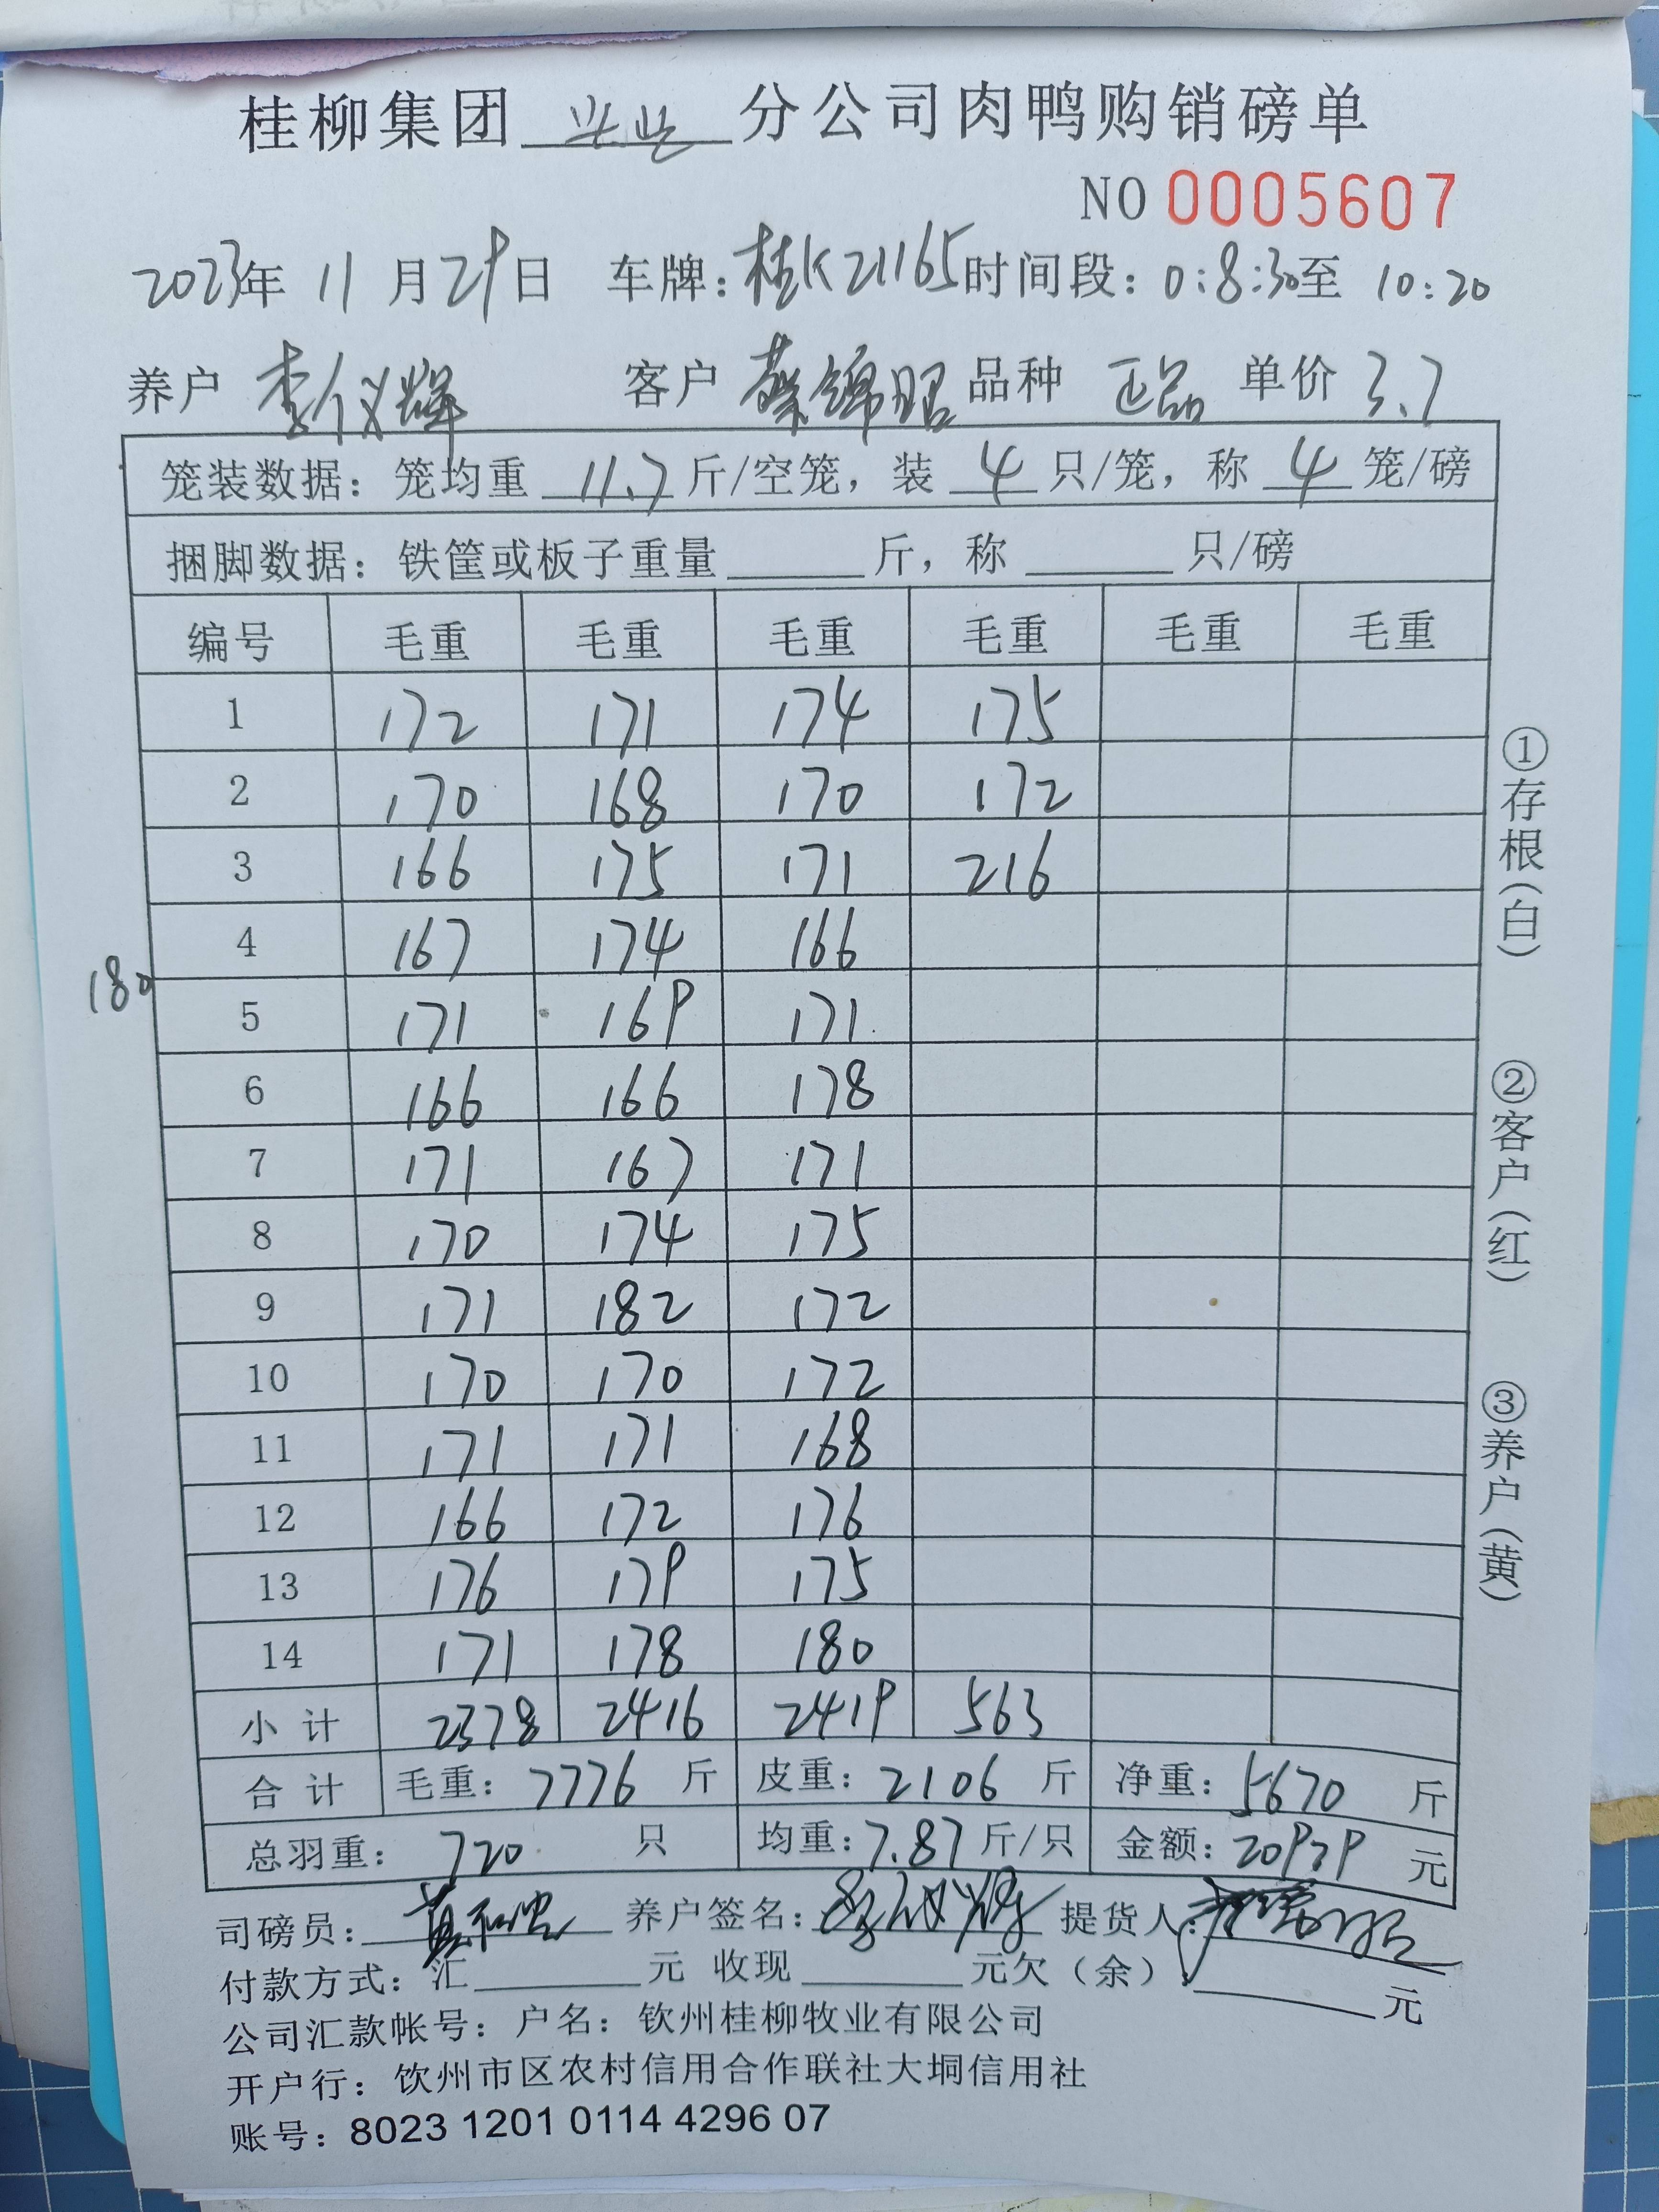 桂柳集团 兴业 分公司肉鸭购销磅单
NO 0005607
2023年 11 月 29日 车牌：桂K21165 时间段：0:8:30至 10:20
养户 李仪辉 客户 蔡锦昭 品种 正品 单价 3.7
笼装数据：笼均重 11.7 斤/空笼，装 4 只/笼，称 4 笼/磅
捆脚数据：铁筐或板子重量 斤，称 只/磅
编号 毛重 毛重 毛重 毛重 毛重 毛重
1 172 171 174 175
2 170 168 170 172
3 166 175 171 216
4 167 174 166
180
5 171 169 171
6 166 166 178
7 171 167 171
8 170 174 175
9 171 182 172
10 170 170 172
11 171 171 168
12 166 172 176
13 176 179 175
14 171 178 180
小计 2378 2416 2419 563
合计 毛重：7776 斤 皮重：2106 斤 净重：5670 斤
总羽重：720 只 均重：7.87 斤/只 金额：20979 元
司磅员： 养户签名：李仪辉 提货人：
付款方式：汇 元 收现 元欠（余） 元
公司汇款帐号：户名：钦州桂柳牧业有限公司
开户行：钦州市区农村信用合作联社大垌信用社
账号：8023 1201 0114 4296 07
①存根（白）
②客户（红）
③养户（黄）